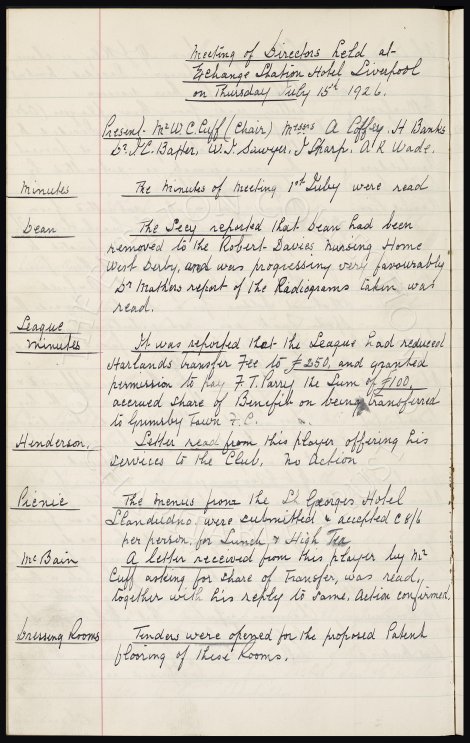 Meeting of Directors held at
Exchange Station Hotel Liverpool
on Thursday July 15th 1926.
Present. Mr W.C. Cuff (Chair) Messrs A Coffey. H Banks
Dr. J.C. Baxter, W.J. Sawyer, J Sharp. A.R. Wade.
Minutes The Minutes of Meeting 1st July were read
Dean The Secy reported that Dean had been
removed to the Robert Davies Nursing Home
West Derby, and was progressing very favourably
Dr Mathers report of the Radiograms taken was
read.
League
Minutes It was reported that the League had reduced
Harlands Transfer Fee to £250, and granted
permission to pay F.T. Parry the Sum of £100,
accrued share of Benefit on being transferred
to Grimsby Town F.C.
Henderson. Letter read from this player offering his
services to the Club. No Action
Picnic The Menus from the St Georges Hotel
Llandudno were submitted & accepted @ 8/6
per person, for Lunch & High Tea
McBain A letter received from this player by Mr
Cuff asking for share of Transfer, was read,
together with his reply to same. Action confirmed.
Dressing Rooms Tenders were opened for the proposed Patent
flooring of these Rooms.